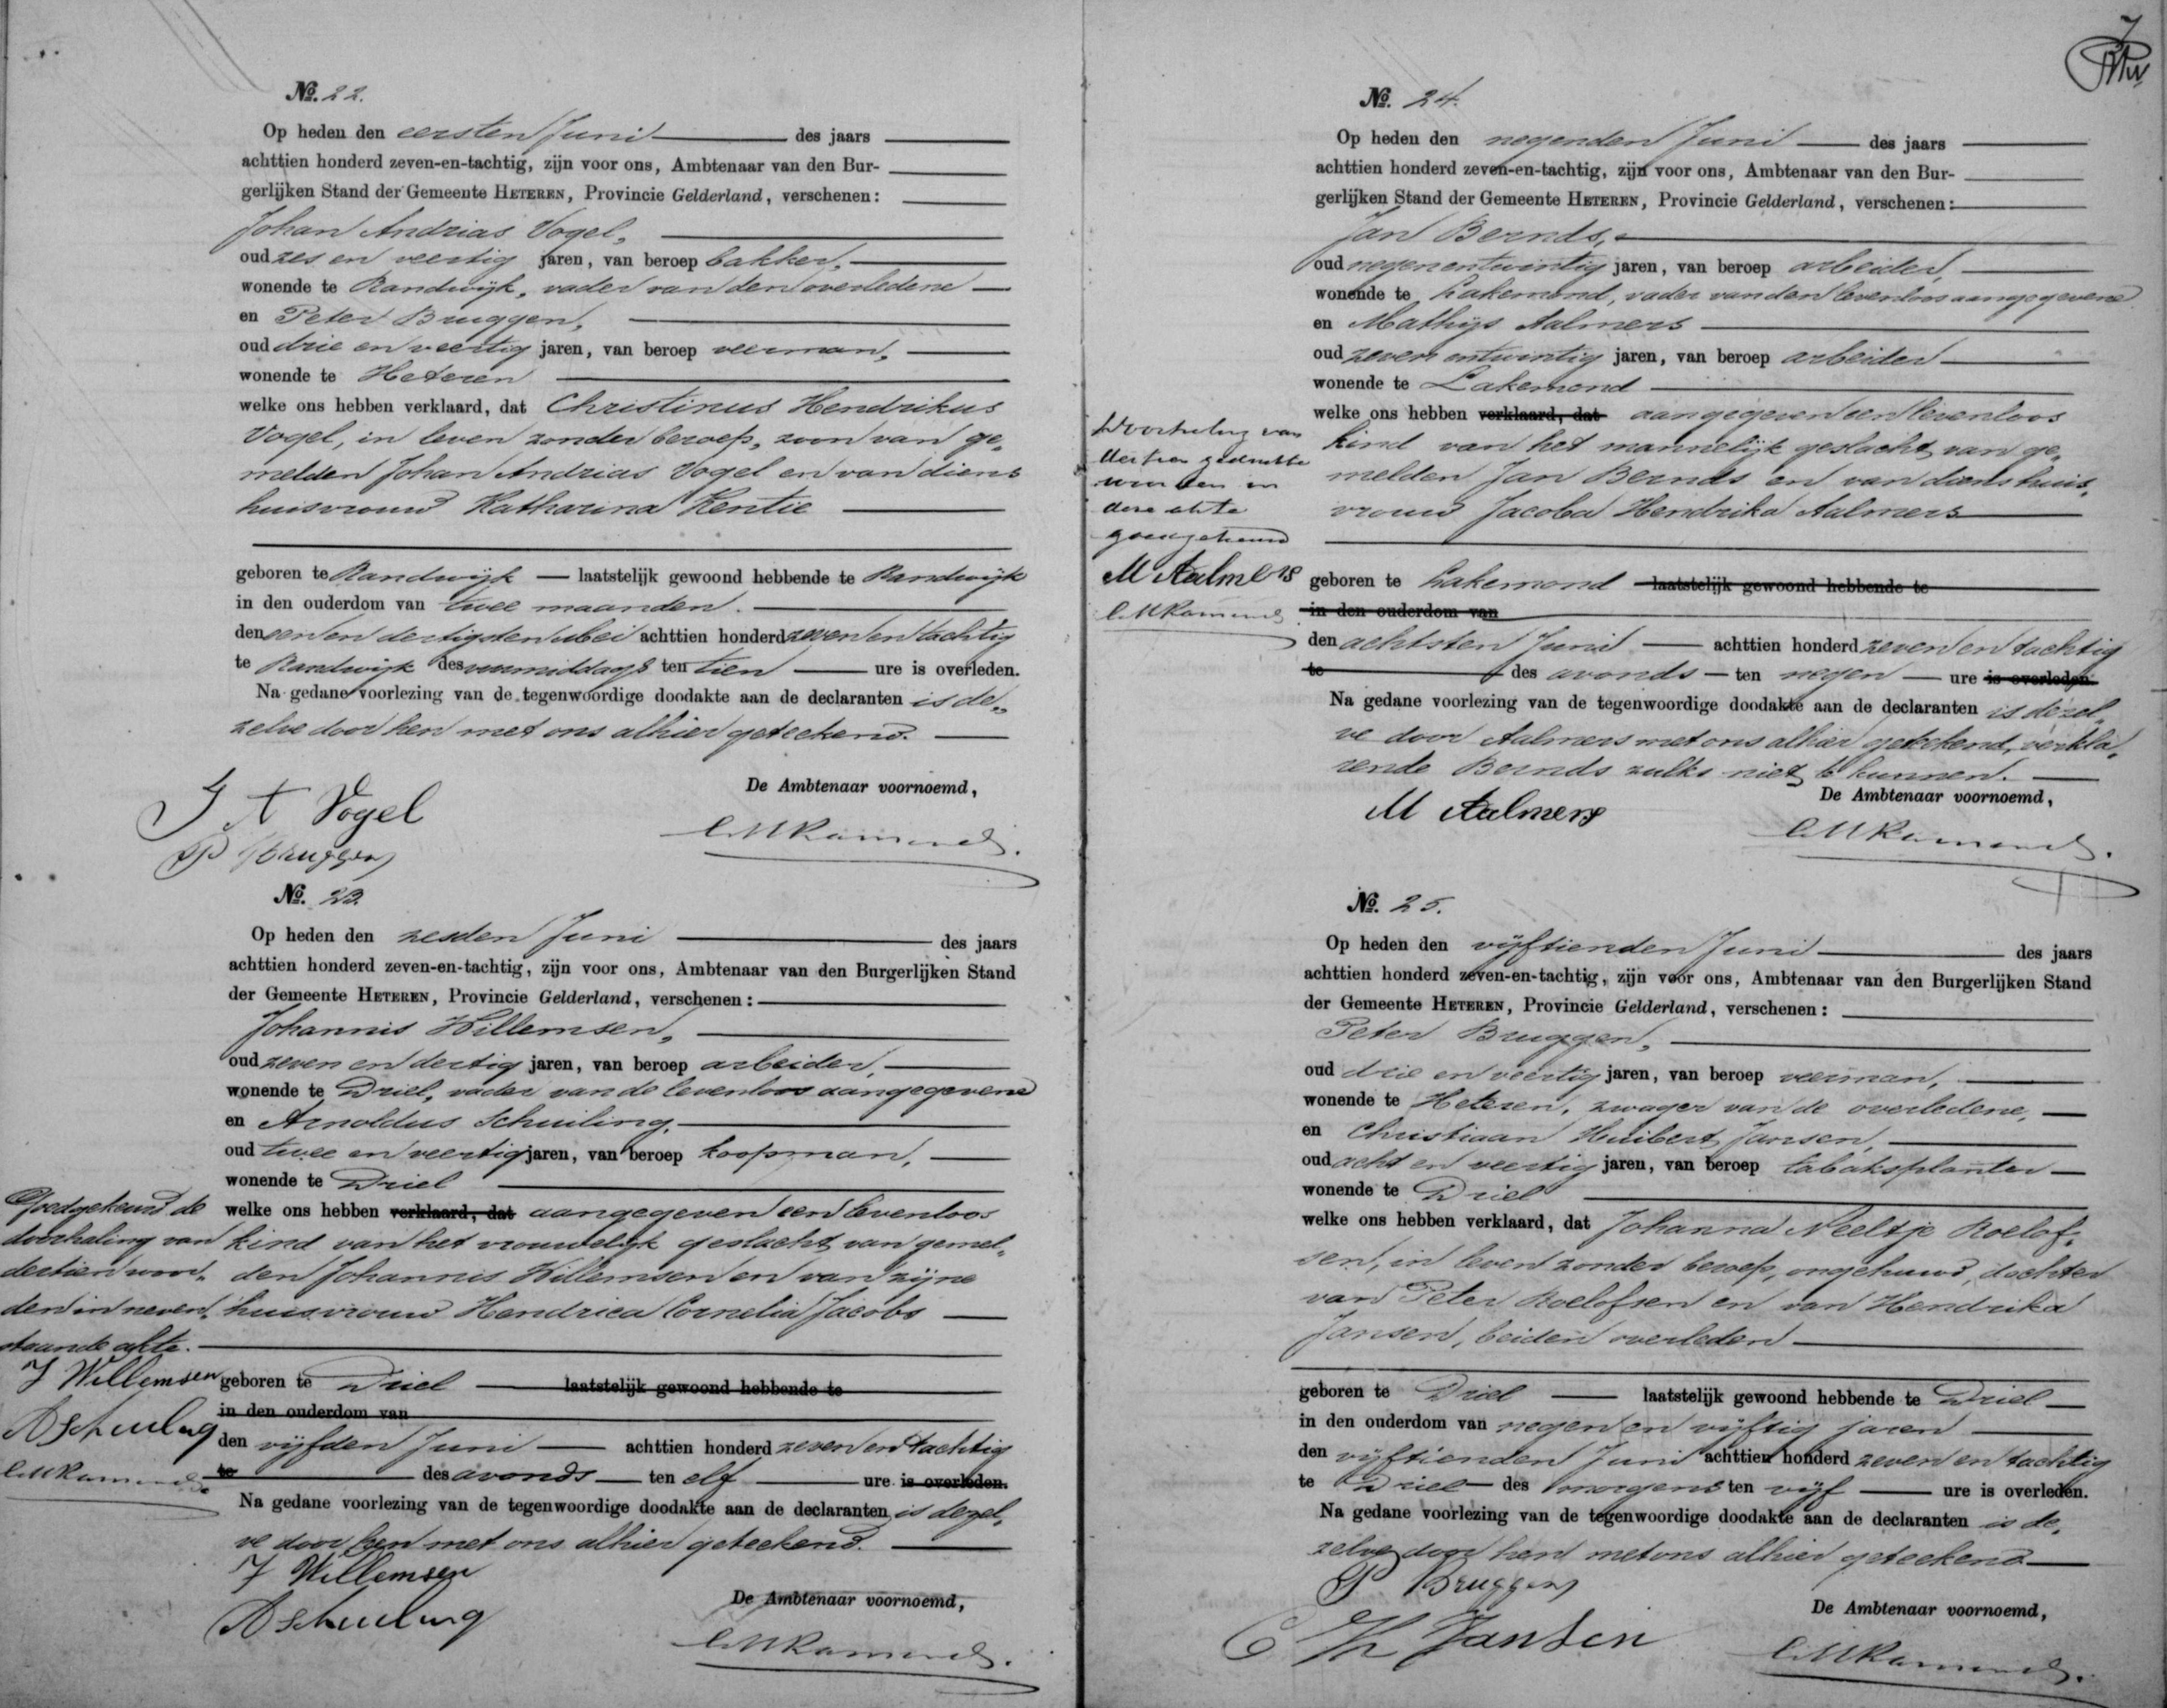 No. 22.
Op heden den eersten Juni des jaars
achttien honderd zeven-en-tachtig, zijn voor ons, Ambtenaar van den Bur-
gerlijken Stand der Gemeente HETEREN, Provincie Gelderland, verschenen:
Johan Andrias Vogel,
oud zes en veertig jaren, van beroep bakker,
wonende te Randwijk, vader van den overledene
en Peter Bruggen,
oud drie en veertig jaren, van beroep veerman,
wonende te Heteren
welke ons hebben verklaard, dat Christinus Hendrikus
Vogel, in leven zonder beroep, zoon van ge„
melden Johan Andrias Vogel en van diens
huisvrouw Katharina Kentie
geboren te Randwijk laatstelijk gewoond hebbende te Randwijk
in den ouderdom van twee maanden.
den een en dertigsten Mei achttien honderd zeven en tachtig
te Randwijk des voormiddags ten tien ure is overleden.
Na gedane voorlezing van de tegenwoordige doodakte aan de declaranten is de„
zelve door hen met ons alhier geteekend.
De Ambtenaar voornoemd,
J A Vogel
P Bruggen
No. 23.
Op heden den zesden Juni des jaars
achttien honderd zeven-en-tachtig, zijn voor ons, Ambtenaar van den Burgerlijken Stand
der Gemeente HETEREN, Provincie Gelderland, verschenen:
Johannis Willemsen,
oud zeven en dertig jaren, van beroep arbeider,
wonende te Driel, vader van de levenloos aangegevene
en Arnoldus Schuiling,
oud twee en veertig jaren, van beroep koopman,
wonende te Driel
welke ons hebben verklaard, dat aangegeven een levenloos
kind van het vrouwelijk geslacht van gemel„
den Johannis Willemsen en van zijne
huisvrouw Hendrica Cornelia Jacobs
Goedgekeurd de
doorhaling van
dertien woor„
den in neven„
staande akte.
J Willemsen
A Schuling
geboren te Driel laatstelijk gewoond hebbende te
in den ouderdom van
den vijfden Juni achttien honderd zeven en tachtig
te des avonds ten elf ure is overleden.
Na gedane voorlezing van de tegenwoordige doodakte aan de declaranten is dezel„
ve door hen met ons alhier geteekend.
J Willemsen
A Schuling
De Ambtenaar voornoemd,
No. 24.
Op heden den negenden Juni des jaars
achttien honderd zeven-en-tachtig, zijn voor ons, Ambtenaar van den Bur-
gerlijken Stand der Gemeente HETEREN, Provincie Gelderland, verschenen:
Jan Bernds,
oud negenentwintig jaren, van beroep arbeider,
wonende te Lakemond, vader van den levenloos aangegevene
en Mathijs Aalmers
oud zeven entwintig jaren, van beroep arbeider
wonende te Lakemond
welke ons hebben verklaard, dat aangegeven een levenloos
kind van het mannelijk geslacht van ge„
melden Jan Bernds en van diens huis„
vrouw Jacoba Hendrika Aalmers
Doorhaling van
dertien gedrukte
woorden in
deze akte
goedgekeurd
M Aalmers
geboren te Lakemond laatstelijk gewoond hebbende te
in den ouderdom van
den achtsten Juni achttien honderd zeven en tachtig
te des avonds ten negen ure is overleden.
Na gedane voorlezing van de tegenwoordige doodakte aan de declaranten is dezel„
ve door Aalmers met ons alhier geteekend, verkla„
rende Bernds zulks niet te kunnen.
De Ambtenaar voornoemd,
M Aalmers
No. 25.
Op heden den vijftienden Juni des jaars
achttien honderd zeven-en-tachtig, zijn voor ons, Ambtenaar van den Burgerlijken Stand
der Gemeente HETEREN, Provincie Gelderland, verschenen:
Peter Bruggen,
oud drie en veertig jaren, van beroep veerman,
wonende te Heteren, zwager van de overledene,
en Christiaan Huibert Jansen,
oud acht en veertig jaren, van beroep tabaksplanter
wonende te Driel
welke ons hebben verklaard, dat Johanna Neeltje Roelof„
sen, in leven zonder beroep, ongehuwd, dochter
van Peter Roelofsen en van Hendrika
Jansen, beiden overleden
geboren te Driel laatstelijk gewoond hebbende te Driel
in den ouderdom van negen en vijftig jaren
den vijftienden Juni achttien honderd zeven en tachtig
te Driel des morgens ten vijf ure is overleden.
Na gedane voorlezing van de tegenwoordige doodakte aan de declaranten is de„
zelve door hen met ons alhier geteekend
P Bruggen
De Ambtenaar voornoemd,
C H Jansen